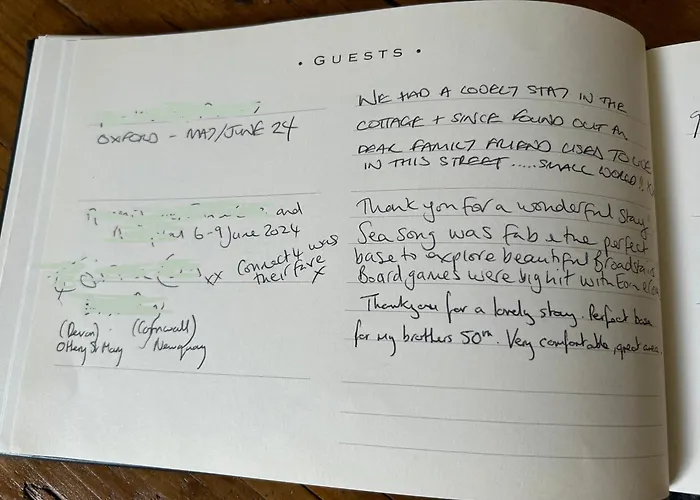 • GUESTS •
OXFORD - MAY/JUNE 24
WE HAD A LOVELY STAY IN THE
COTTAGE + SINCE FOUND OUT AN
DEAR FAMILY FRIEND USED TO LIVE
IN THIS STREET.....SMALL WORLD!!
and
6-9 June 2024
xx Connect 4 was
their fave
x
Thank you for a wonderful stay!
Sea song was fab & the perfect
base to explore beautiful Broadstairs
Board games were big hit with
(Devon) (Cornwall)
Ottery St Mary Newquay
Thankyou for a lovely stay. Perfect base
for my brothers 50th. Very comfortable, great area.